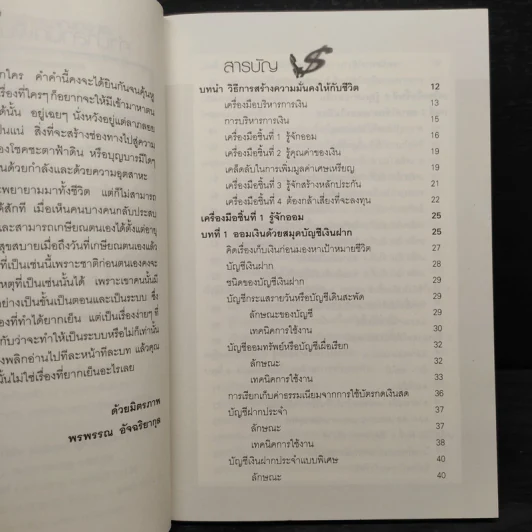 กใคร คำคำนี้คงจะได้ยินกันจนคุ้นหู
เรื่องที่ใครๆ ก็อยากจะให้มีเข้ามาหาตน
ได้นั้น อยู่เฉยๆ นั่งหวังอยู่แต่ลาภลอย
เป็นแน่ สิ่งที่จะสร้างช่องทางไปสู่ความ
องโชคชะตาฟ้าดิน หรือบุญบารมีใดๆ
นด้วยกำลังและด้วยความอุตสาหะ
ะพยายามมาทั้งชีวิต แต่ก็ไม่สามารถ
ได้สักที เมื่อเห็นคนบางคนกลับประสบ
และสามารถเกษียณตนเองได้ตั้งแต่อายุ
สุขสบายเมื่อถึงวันที่เกษียณตนเองแล้ว
ที่เป็นเช่นนี้เพราะชาติก่อนตนเองคงจะ
เหตุที่เป็นเช่นนั้นได้ เพราะเขาคนนั้นมี
อย่างเป็นขั้นเป็นตอนและเป็นระบบ ซึ่ง
องที่ทำได้ยากเย็น แต่เป็นเรื่องง่ายๆ ที่
กับว่าจะทำให้เป็นระบบหรือไม่ก็เท่านั้น
งพลิกอ่านไปทีละหน้าทีละบท แล้วคุณ
นั้นไม่ใช่เรื่องที่ยากเย็นอะไรเลย
ด้วยมิตรภาพ
พรพรรณ อัจฉริยากุล
สารบัญ
บทนำ วิธีการสร้างความมั่นคงให้กับชีวิต 12
เครื่องมือบริหารการเงิน 13
การบริหารการเงิน 15
เครื่องมือชิ้นที่ 1 รู้จักออม 16
เครื่องมือชิ้นที่ 2 รู้คุณค่าของเงิน 19
เคล็ดลับในการเพิ่มมูลค่าเศษเหรียญ 19
เครื่องมือชิ้นที่ 3 รู้จักสร้างหลักประกัน 21
เครื่องมือชิ้นที่ 4 ต้องกล้าเสี่ยงที่จะลงทุน 22
เครื่องมือชิ้นที่ 1 รู้จักออม 25
บทที่ 1 ออมเงินด้วยสมุดบัญชีเงินฝาก 25
คิดเรื่องเก็บเงินก่อนมองหาเป้าหมายชีวิต 27
บัญชีเงินฝาก 28
ชนิดของบัญชีเงินฝาก 29
บัญชีกระแสรายวันหรือบัญชีเดินสะพัด 29
ลักษณะของบัญชี 29
เทคนิคการใช้งาน 30
บัญชีออมทรัพย์หรือบัญชีเผื่อเรียก 32
ลักษณะ 32
เทคนิคการใช้งาน 33
การเรียกเก็บค่าธรรมเนียมจากการใช้บัตรกดเงินสด 36
บัญชีฝากประจำ 37
ลักษณะ 37
เทคนิคการใช้งาน 38
บัญชีเงินฝากประจำแบบพิเศษ 40
ลักษณะ 40